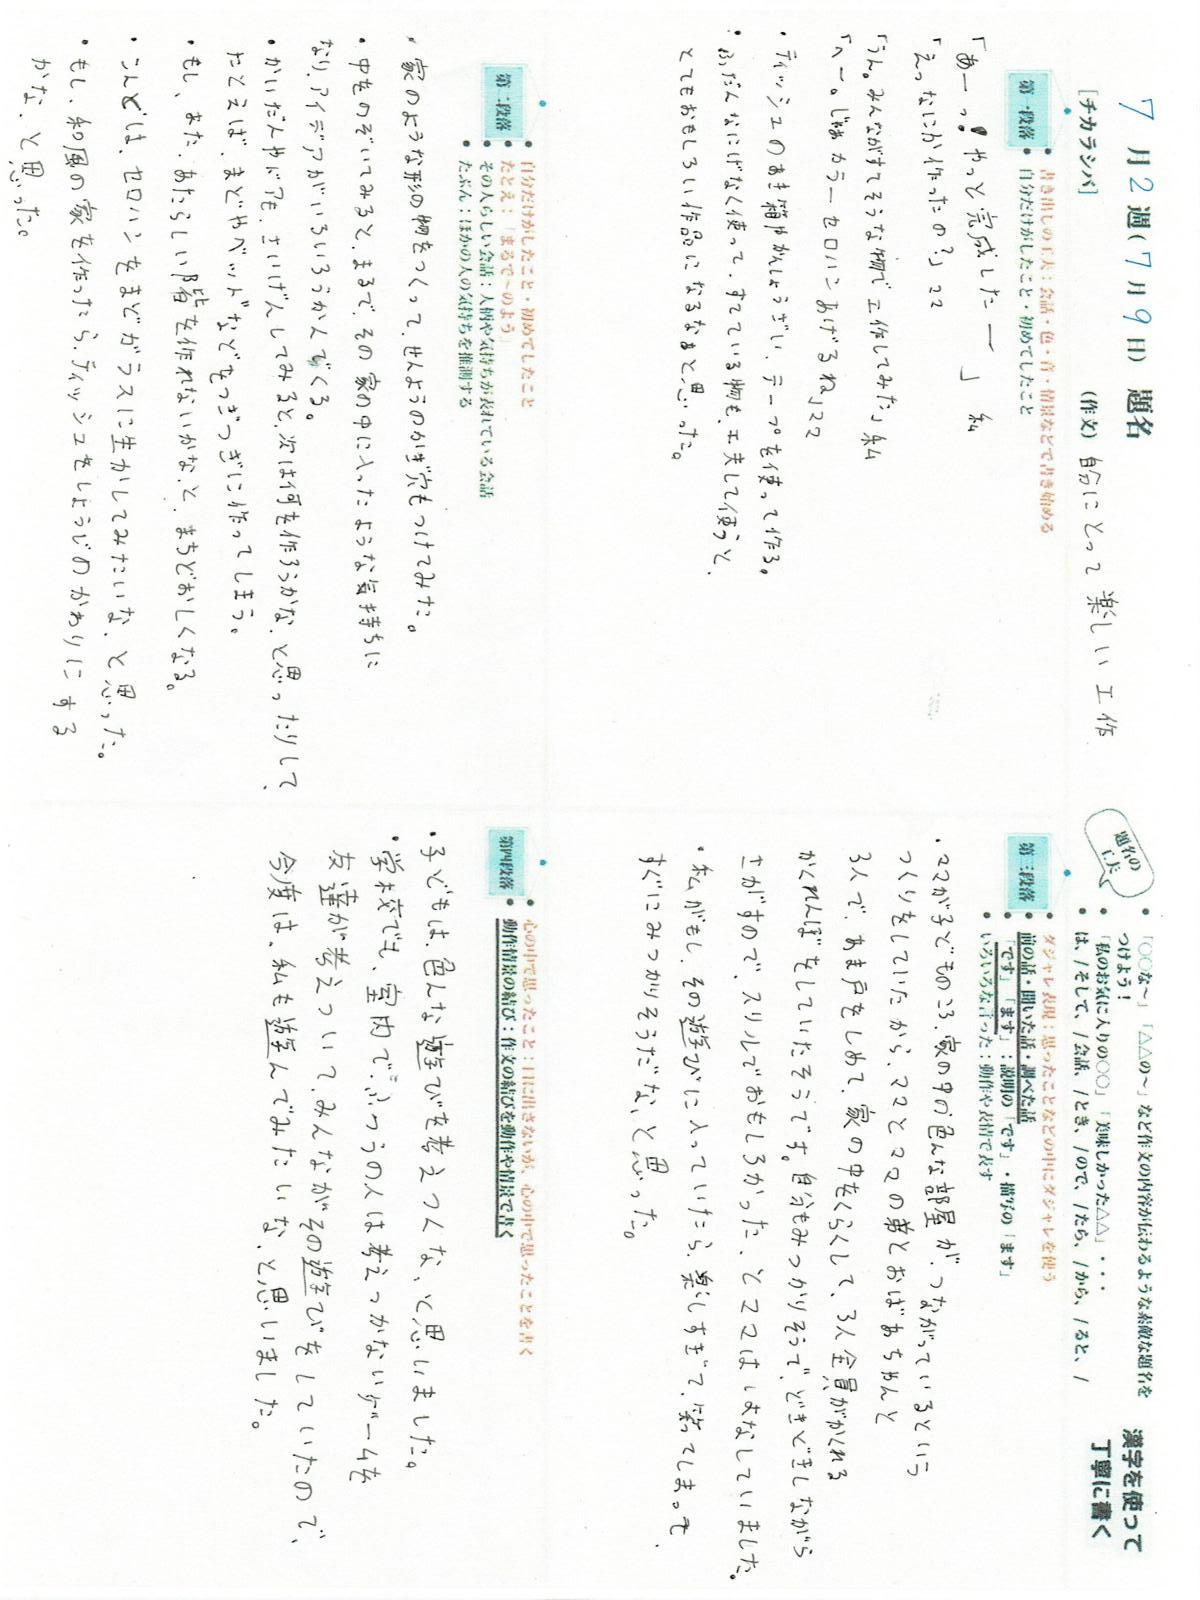 7月2週(7月9日) 題名
[チカラシバ]
(作文) 自分にとって楽しい工作
第一段落
書き出しの工夫：会話・色・音・情景などで書き始める
自分だけがしたこと・初めてしたこと
「あーっ!やっと完成したー」私
「えっなにか作ったの?」ママ
「うん。みんながすてそうな物で工作してみた」私
「へー。じゃあカラーセロハンあげるね」ママ
・ティッシュのあき箱やかんしょうざい、テープを使って作る。
・ふだんなにげなく使って、すてている物も、工夫して使うと、
とてもおもしろい作品になるなぁと思った。
第二段落
自分だけがしたこと・初めてしたこと
たとえ：「まるで〜のよう」
その人らしい会話：人柄や気持ちが表れている会話
たぶん：ほかの人の気持ちを推測する
・家のような形の物をつくって、せんようのかぎ穴もつけてみた。
・中をのぞいてみると、まるで、その家の中に入ったような気持ちに
なり、アイデアがいろいろうかんでくる。
・かいだんやドアも、さいげんしてみると、次は何を作ろうかな、と思ったりして、
たとえば、まどやベッドなどをつぎつぎに作ってしまう。
・もし、また、あたらしい階を作れないかな、と、まちどおしくなる。
・こんどは、セロハンをまどガラスに生かしてみたいな、と思った。
・もし、和風の家を作ったら、ティッシュをしょうじのかわりにする
かな、と思った。
題名の工夫
「○○な〜」「△△の〜」など作文の内容が伝わるような素敵な題名をつけよう！
「私のお気に入りの○○○」「美味しかった△△」・・・
は、/そして、/会話、/とき、/ので、/たら、/から、/ると、/
漢字を使って
丁寧に書く
第三段落
ダジャレ表現：思ったことなどの中にダジャレを使う
前の話・聞いた話・調べた話
「です」「ます」：説明の「です」・描写の「ます」
いろいろな言った：動作や表情で表す
・ママが子どものころ、家の中の色んな部屋が、つながっているという
つくりをしていたから、ママとママの弟とおばあちゃんと
3人で、あま戸をしめて、家の中をくらくして、3人全員がかくれる
かくれんぼをしていたそうです。自分もみつかりそうで、どきどきしながら
さがすので、スリルでおもしろかった、とママははなしていました。
・私がもし、その遊びに入っていたら、楽しすぎて、笑ってしまって、
すぐにみつかりそうだな、と思った。
第四段落
心の中で思ったこと：口に出さないが、心の中で思ったことを書く
動作情景の結び：作文の結びを動作や情景で書く
・子どもは、色んな遊びを考えつくな、と思いました。
・学校でも、室内で、ふつうの人は考えつかないゲームを
友達が考えついて、みんながその遊びをしていたので、
今度は、私も遊んでみたいな、と思いました。